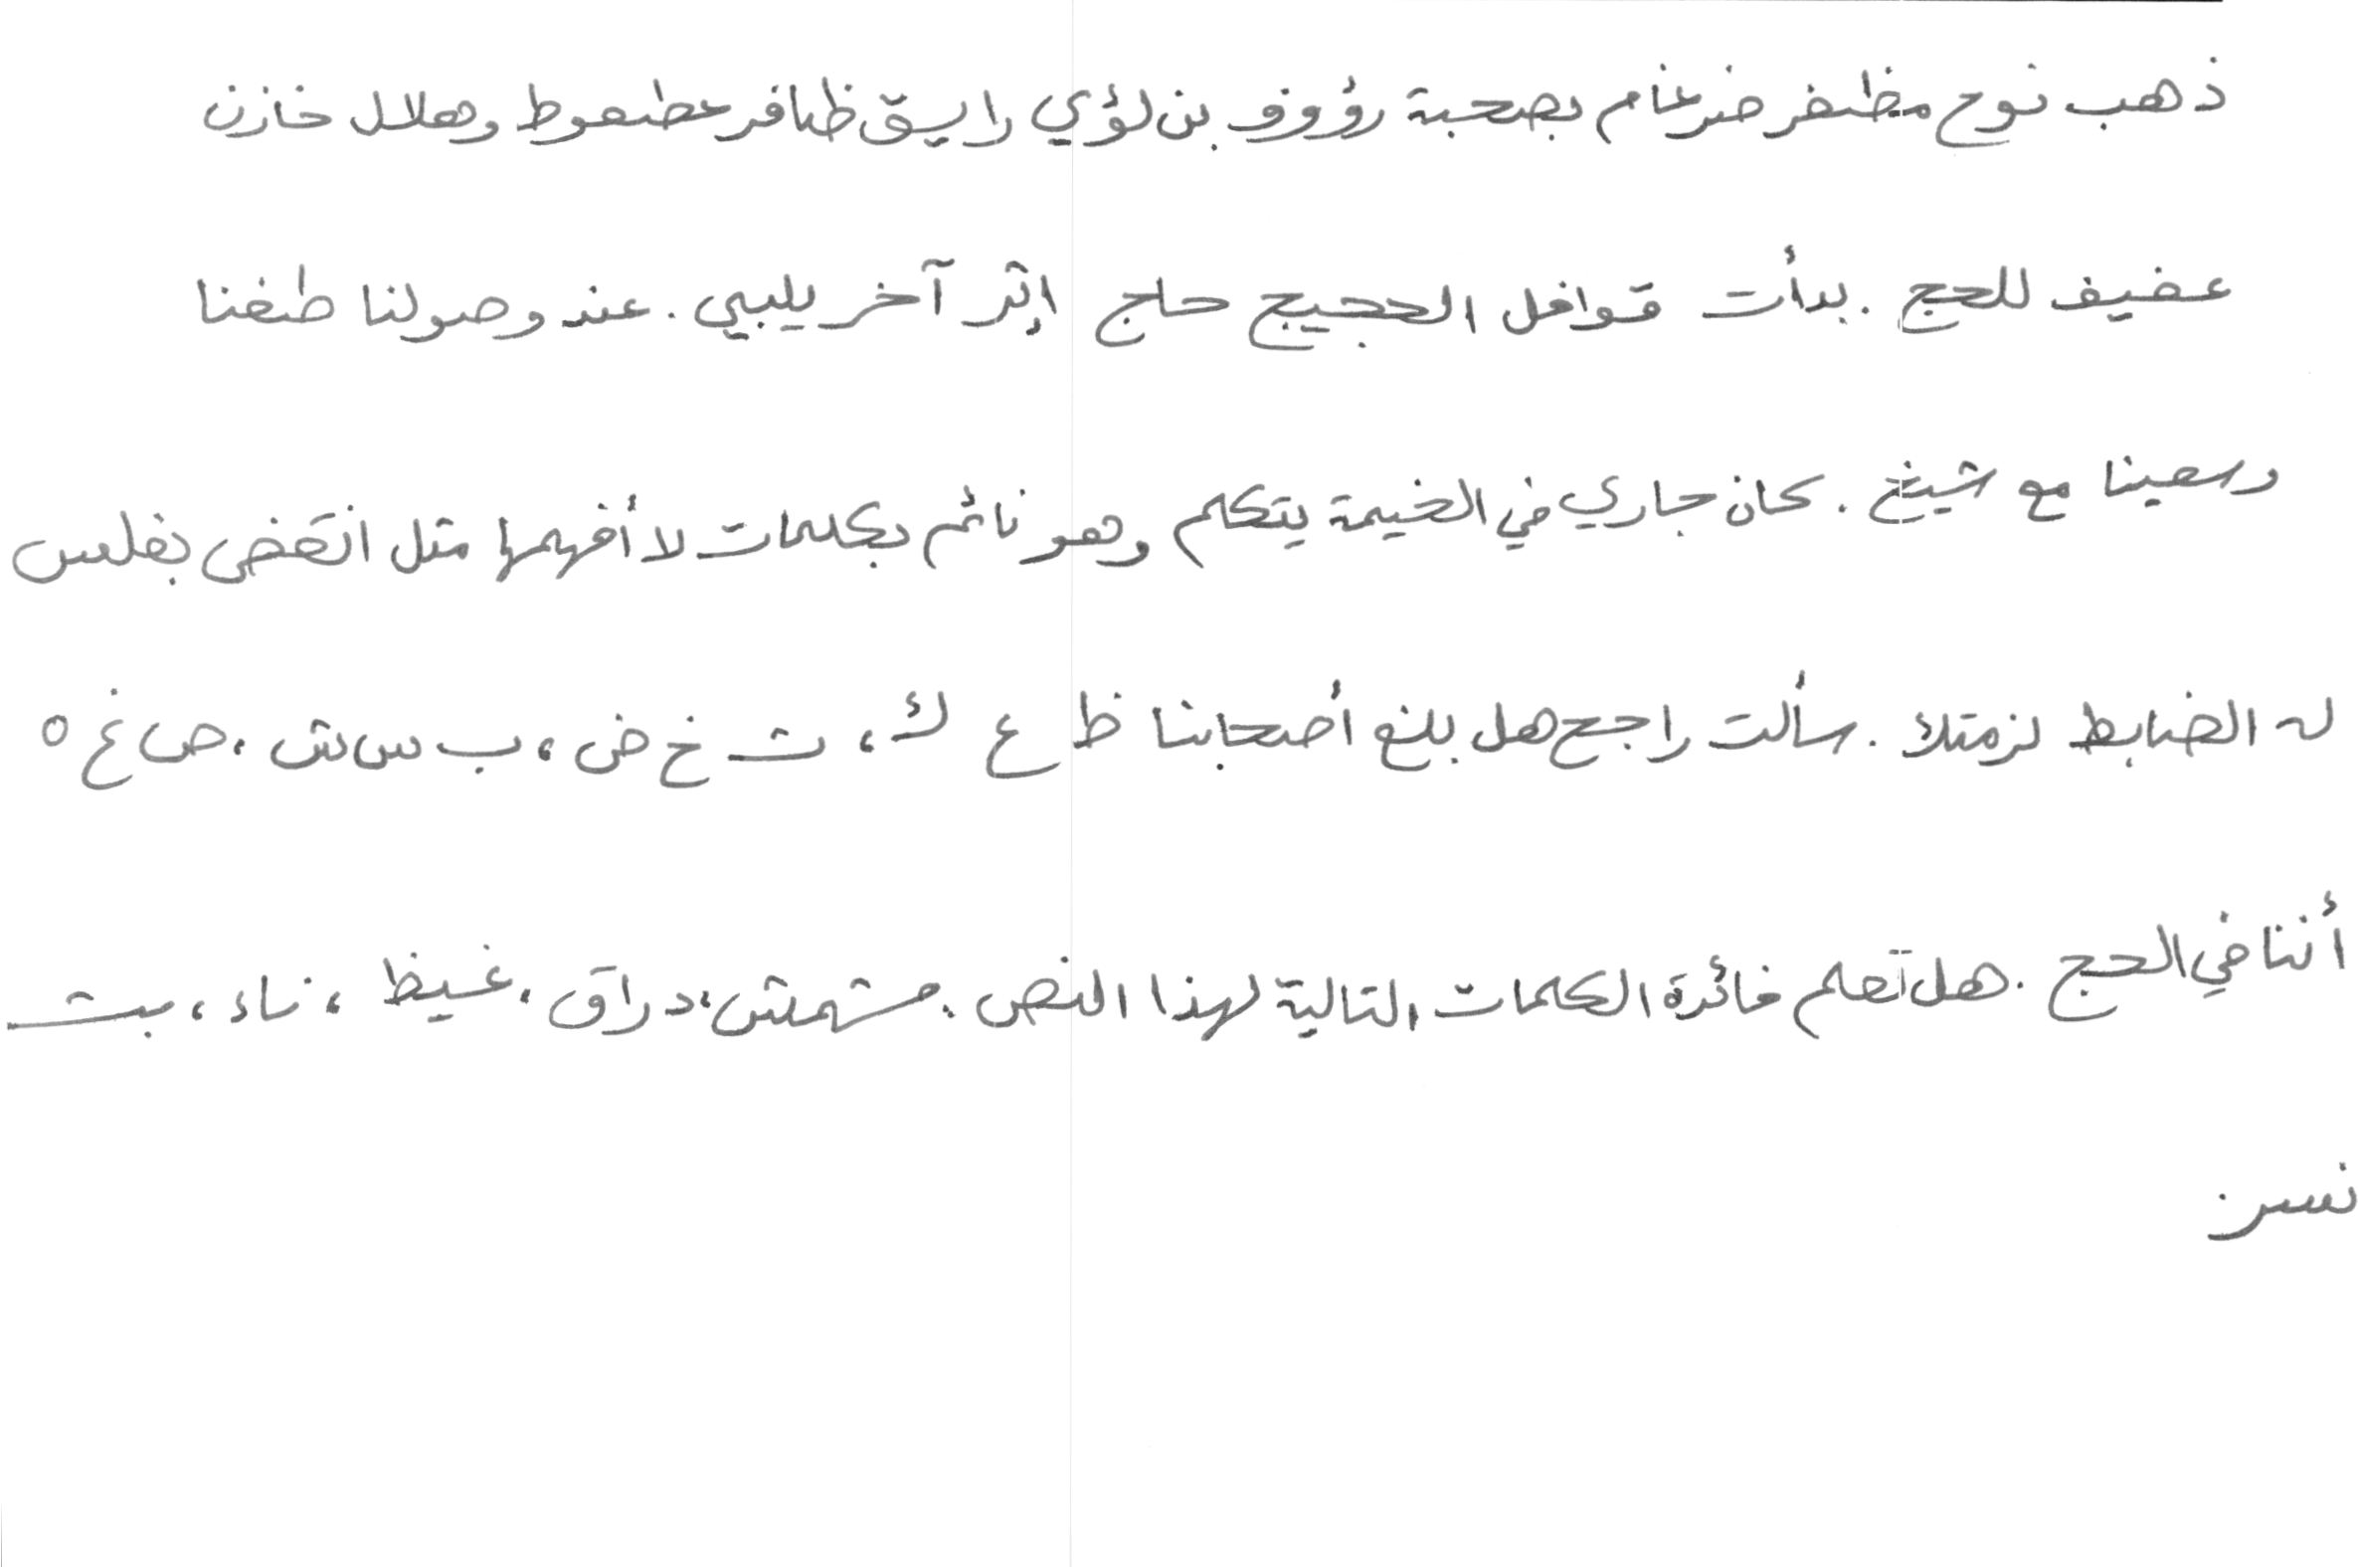 ذهب نوح مظفر ضرغام بصحبة رؤوف بن لؤي رايق ظافر عطعوط وهلال خازن
عفيف للحج . بدأت قوافل الحجيج حاج إثر آخر يلبي . عند وصولنا طفنا
وسعينا مع شيخ . كان جاري في الخيمة يتكلم وهو نائم بكلمات لا أفهمها مثل انقض بغلس
له الضابط لزمتك . سألت راجح هل بلغ أصحابنا ظ ع ك ، ث خ ض ، ب س ش ، ص غ ه
أننا في الحج . هل تعلم فائدة الكلمات التالية لهذا النص . مشمش ، دراق ، غيظ ، ناء ، بث
نسر .